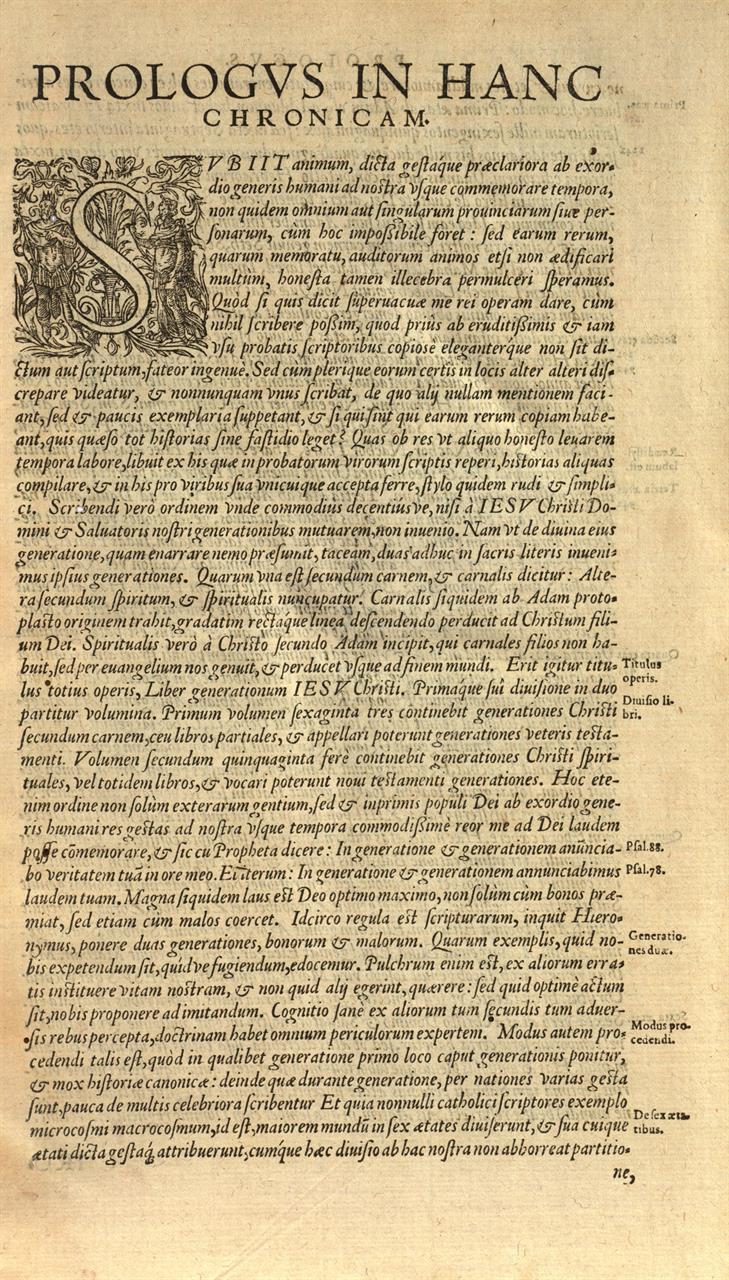 PROLOGVS IN HANC
CHRONICAM.
SVBIIT animum, dicta gestáque præclariora ab exor-
dio generis humani ad nostra vsque commemorare tempora,
non quidem omnium aut singularum prouinciarum siue per-
sonarum, cùm hoc impoßibile foret : sed earum rerum,
quarum memoratu, auditorum animos etsi non ædificari
multùm, honesta tamen illecebra permulceri speramus.
Quòd si quis dicit superuacuæ me rei operam dare, cùm
nihil scribere poßim, quod priùs ab eruditißimis & iam
vsu probatis scriptoribus copiosè elegantérque non sit di-
ctum aut scriptum, fateor ingenuè. Sed cum plerique eorum certis in locis alter alteri dis-
crepare videatur, & nonnunquam vnus scribat, de quo alij nullam mentionem faci-
ant, sed & paucis exemplaria suppetant, & si qui sint qui earum rerum copiam habe-
ant, quis quæso tot historias sine fastidio leget? Quas ob res vt aliquo honesto leuarem
tempora labore, libuit ex his quæ in probatorum virorum scriptis reperi, historias aliquas
compilare, & in his pro viribus sua vnicuique accepta ferre, stylo quidem rudi & simpli-
ci. Scribendi verò ordinem vnde commodius decentiúsve, nisi à IESV Christi Do-
mini & Saluatoris nostri generationibus mutuarem, non inuenio. Nam vt de diuina eius
generatione, quam enarrare nemo præsumit, taceam, duas adhuc in sacris literis inueni-
mus ipsius generationes. Quarum vna est secundum carnem, & carnalis dicitur : Alte-
ra secundum spiritum, & spiritualis nuncupatur. Carnalis siquidem ab Adam proto-
plasto originem trahit, gradatim rectáque linea descendendo perducit ad Christum fili-
um Dei. Spiritualis verò à Christo secundo Adam incipit, qui carnales filios non ha-
buit, sed per euangelium nos genuit, & perducet vsque ad finem mundi. Erit igitur titu-
Titulus operis.
lus totius operis, Liber generationum IESV Christi. Primáque sui diuisione in duo
Diuisio li-
bri.
partitur volumina. Primum volumen sexaginta tres continebit generationes Christi
secundum carnem, ceu libros partiales, & appellari poterunt generationes veteris testa-
menti. Volumen secundum quinquaginta ferè continebit generationes Christi spiri-
tuales, vel totidem libros, & vocari poterunt noui testamenti generationes. Hoc ete-
nim ordine non solùm exterarum gentium, sed & inprimis populi Dei ab exordio gene-
ris humani res gestas ad nostra vsque tempora commodißimè reor me ad Dei laudem
posse cōmemorare, & sic cū Propheta dicere : In generatione & generationem anuncia-
Psal. 88.
bo veritatem tuā in ore meo. Et iterum : In generatione & generationem annunciabimus
Psal. 78.
laudem tuam. Magna siquidem laus est Deo optimo maximo, non solùm cùm bonos præ-
miat, sed etiam cùm malos coercet. Idcirco regula est scripturarum, inquit Hiero-
nymus, ponere duas generationes, bonorum & malorum. Quarum exemplis, quid no-
Generatio-
nes duæ.
bis expetendum sit, quidve fugiendum, edocemur. Pulchrum enim est, ex aliorum erra-
tis instituere vitam nostram, & non quid alij egerint, quærere : sed quid optimè actum
sit, nobis proponere ad imitandum. Cognitio sanè ex aliorum tum secundis tum aduer-
sis rebus percepta, doctrinam habet omnium periculorum expertem. Modus autem pro-
Modus pro-
cedendi.
cedendi talis est, quòd in qualibet generatione primo loco caput generationis ponitur,
& mox historiæ canonicæ : deinde quæ durante generatione, per nationes varias gesta
sunt, pauca de multis celebriora scribentur Et quia nonnulli catholici scriptores exemplo
microcosmi macrocosmum, id est, maiorem mundū in sex ætates diuiserunt, & sua cuique
De sex æta-
tibus.
ætati dicta gestaq́; attribuerunt, cúmque hæc diuisio ab hac nostra non abhorreat partitio-
ne,